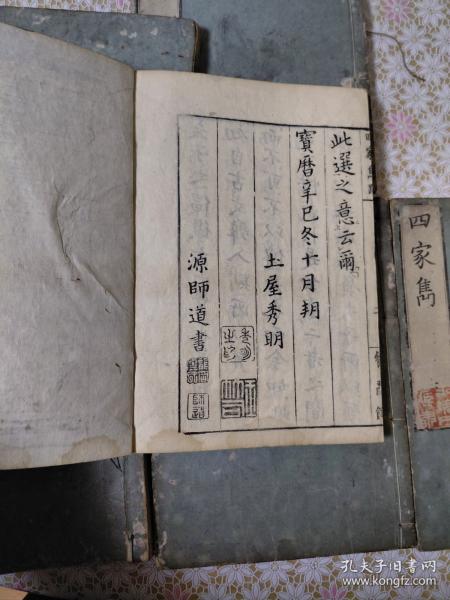 此選之意云爾
寶曆辛巳冬十月朔
土屋秀明
源師道書
四家雋
孔夫子旧书网
www.kongfz.com